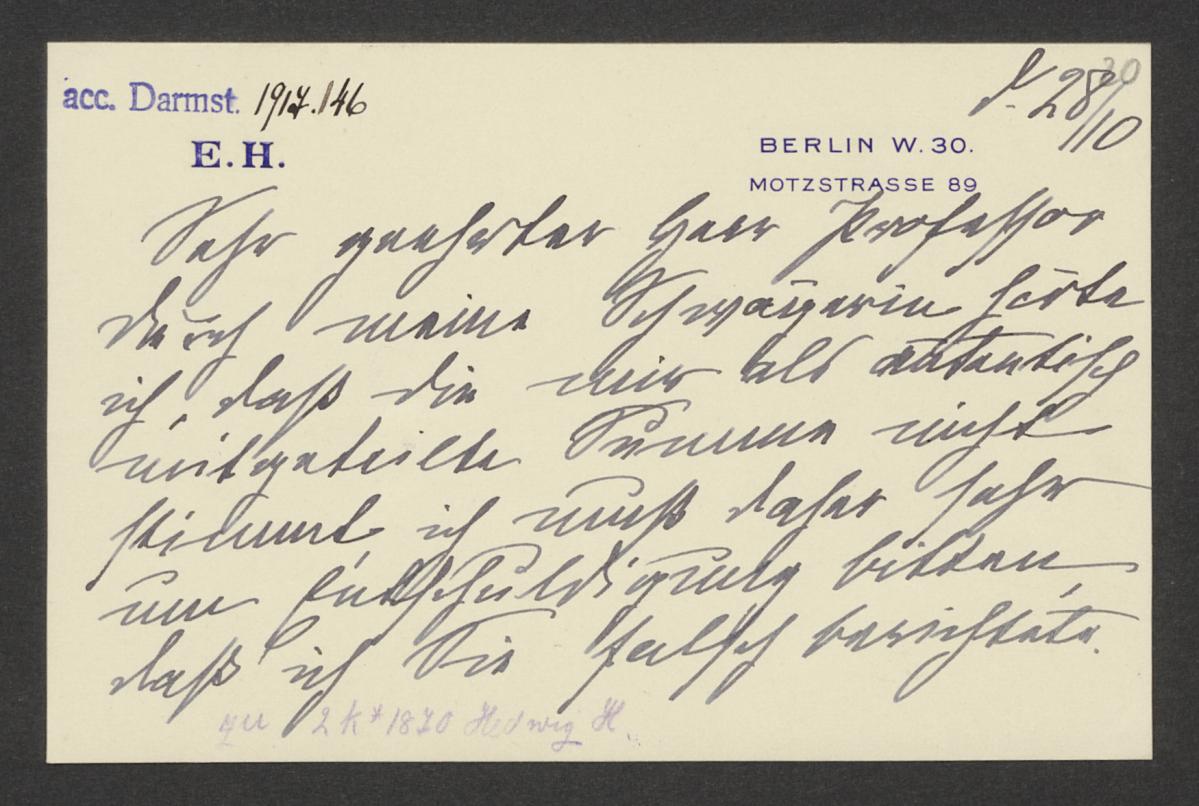 acc. Darmst. 1917.146
30
d. 28/10
E. H.
BERLIN W. 30.
MOTZSTRASSE 89
Sehr geehrter Herr Professor
durch meine Schwägerin hörte
ich, daß die mir als autentisch
mitgeteilte Summe nicht
stimmt, ich muß daher sehr
um Entschuldigung bitten,
daß ich Sie falsch berichtete.
zu 2 k * 1870 Hedwig H.